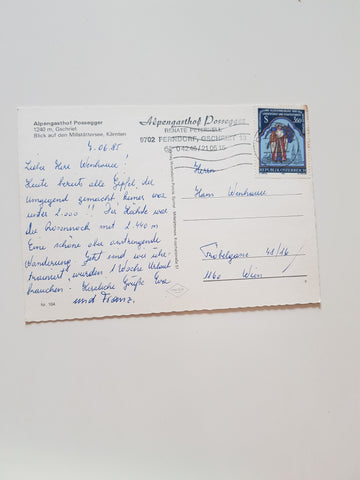 Alpengasthof Possegger
1240 m, Gschriet
Blick auf den Millstättersee, Kärnten
Alpengasthof Possegger
RENATE PETERSELL
9702 FERNDORF, GSCHRIET 33
04246/21
S 3.50
REPUBLIK ÖSTERREICH
4.06.85
Liebe Herr Wenhauer!
Heute bereits alle Gipfel, der
Umgegend gemacht keiner war
unter 2.000!! Der Höchste war
die Rosennock mit 2.440 m
Eine schöne aber anstrengende
Wanderung. Jetzt sind wir über-
trainiert, werden 1 Woche Urlaub
brauchen. Herzliche Grüße Eva
und Franz.
Herrn
Hans Wenhauer
Frobelgasse 42/16
1160 Wien
Nr. 104